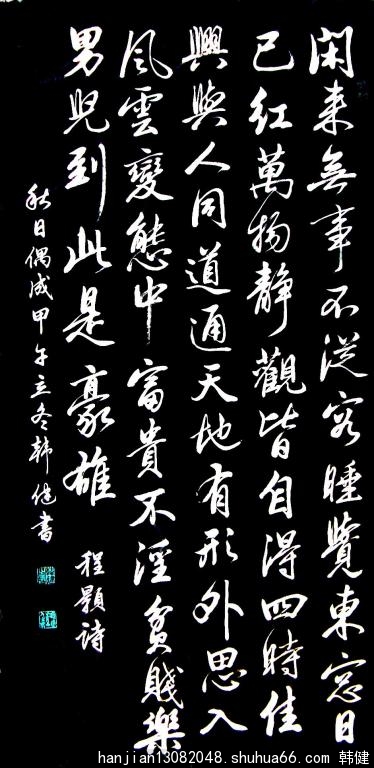 闲来無事不從容睡覺東窓日
已紅萬物靜觀皆自得四時佳
興與人同道通天地有形外思入
風雲變態中富貴不淫貧賤樂
男兒到此是豪雄 程顥詩
秋日偶成甲午立冬韩健書
hanjian13082048.shuhua66.com 韩健